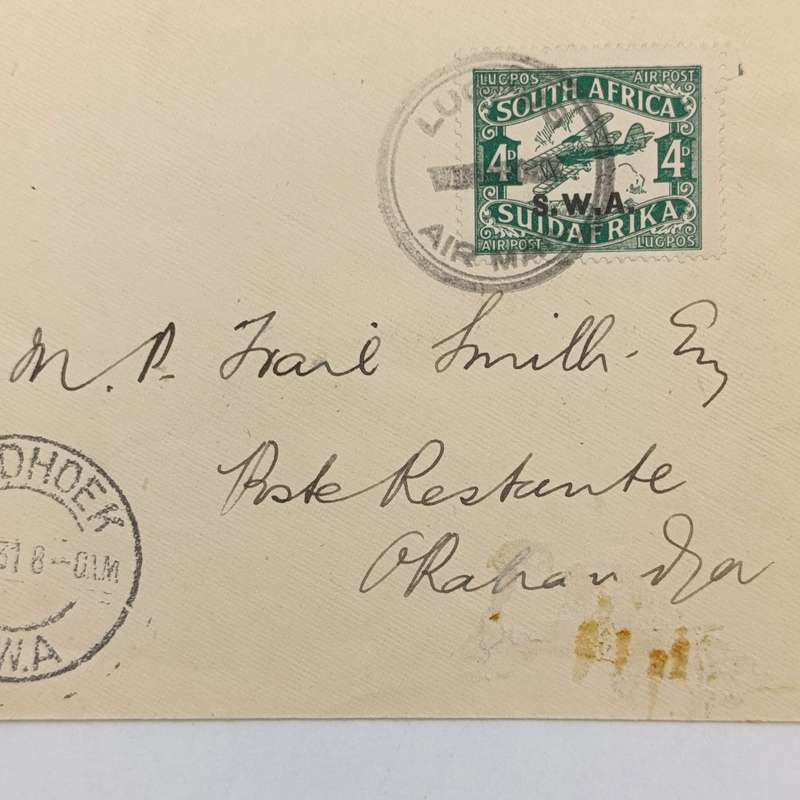 LUGPOS AIR POST
SOUTH AFRICA
4D 4D
S.W.A.
SUIDAFRIKA
AIR POST LUGPOS
LUG
AIR MA
M. P. Trail Smith - Esq
Poste Restante
Okahandja
DHOEK
31 8--0AM
W.A